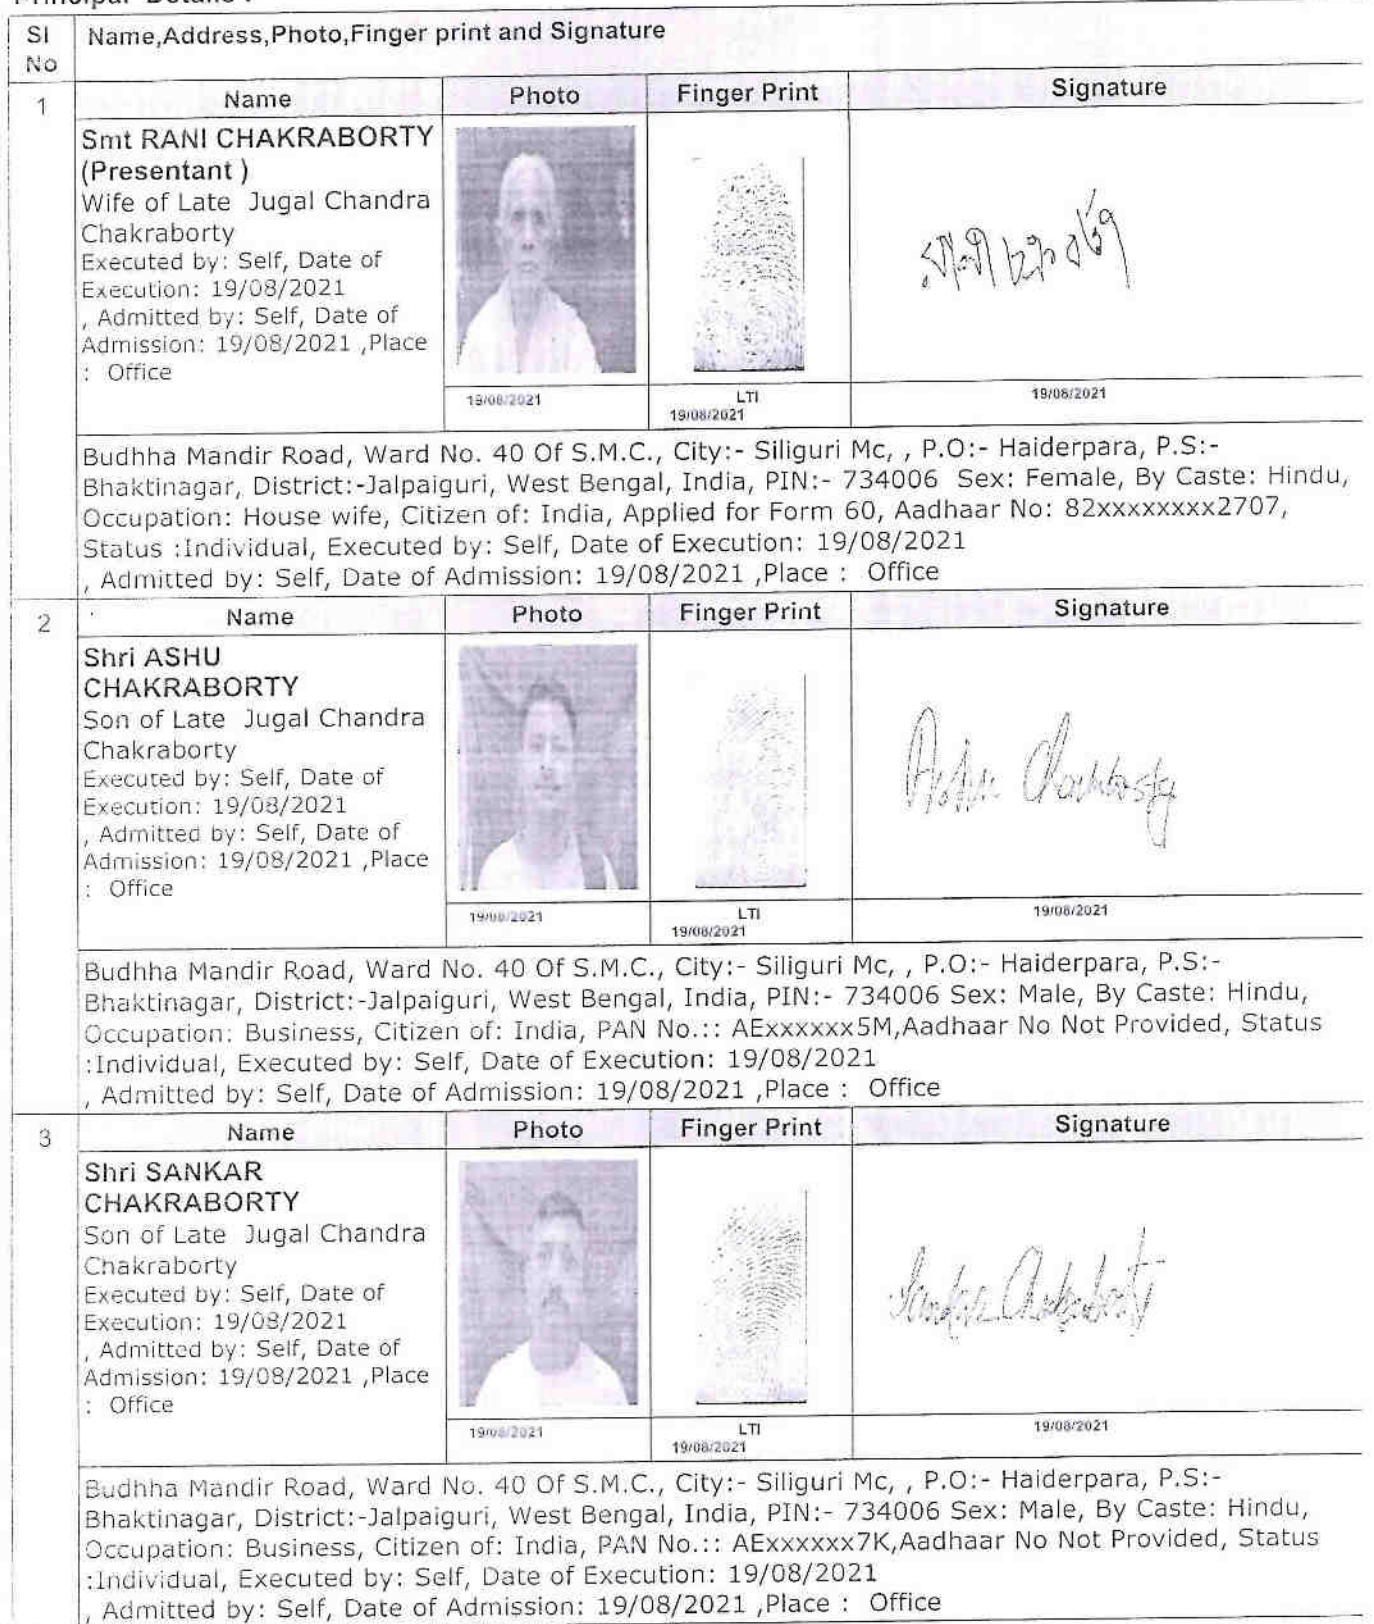 Principal Details :
Sl No
Name,Address,Photo,Finger print and Signature
1
Name
Photo
Finger Print
Signature
Smt RANI CHAKRABORTY
(Presentant )
Wife of Late Jugal Chandra
Chakraborty
Executed by: Self, Date of
Execution: 19/08/2021
, Admitted by: Self, Date of
Admission: 19/08/2021 ,Place
: Office
19/08/2021
LTI
19/08/2021
19/08/2021
Budhha Mandir Road, Ward No. 40 Of S.M.C., City:- Siliguri Mc, , P.O:- Haiderpara, P.S:-
Bhaktinagar, District:-Jalpaiguri, West Bengal, India, PIN:- 734006 Sex: Female, By Caste: Hindu,
Occupation: House wife, Citizen of: India, Applied for Form 60, Aadhaar No: 82xxxxxxxx2707,
Status :Individual, Executed by: Self, Date of Execution: 19/08/2021
, Admitted by: Self, Date of Admission: 19/08/2021 ,Place : Office
2
Name
Photo
Finger Print
Signature
Shri ASHU
CHAKRABORTY
Son of Late Jugal Chandra
Chakraborty
Executed by: Self, Date of
Execution: 19/08/2021
, Admitted by: Self, Date of
Admission: 19/08/2021 ,Place
: Office
Ashu Chakraborty
19/08/2021
LTI
19/08/2021
19/08/2021
Budhha Mandir Road, Ward No. 40 Of S.M.C., City:- Siliguri Mc, , P.O:- Haiderpara, P.S:-
Bhaktinagar, District:-Jalpaiguri, West Bengal, India, PIN:- 734006 Sex: Male, By Caste: Hindu,
Occupation: Business, Citizen of: India, PAN No.:: AExxxxxx5M,Aadhaar No Not Provided, Status
:Individual, Executed by: Self, Date of Execution: 19/08/2021
, Admitted by: Self, Date of Admission: 19/08/2021 ,Place : Office
3
Name
Photo
Finger Print
Signature
Shri SANKAR
CHAKRABORTY
Son of Late Jugal Chandra
Chakraborty
Executed by: Self, Date of
Execution: 19/08/2021
, Admitted by: Self, Date of
Admission: 19/08/2021 ,Place
: Office
Sankar Chakraborty
19/08/2021
LTI
19/08/2021
19/08/2021
Budhha Mandir Road, Ward No. 40 Of S.M.C., City:- Siliguri Mc, , P.O:- Haiderpara, P.S:-
Bhaktinagar, District:-Jalpaiguri, West Bengal, India, PIN:- 734006 Sex: Male, By Caste: Hindu,
Occupation: Business, Citizen of: India, PAN No.:: AExxxxxx7K,Aadhaar No Not Provided, Status
:Individual, Executed by: Self, Date of Execution: 19/08/2021
, Admitted by: Self, Date of Admission: 19/08/2021 ,Place : Office